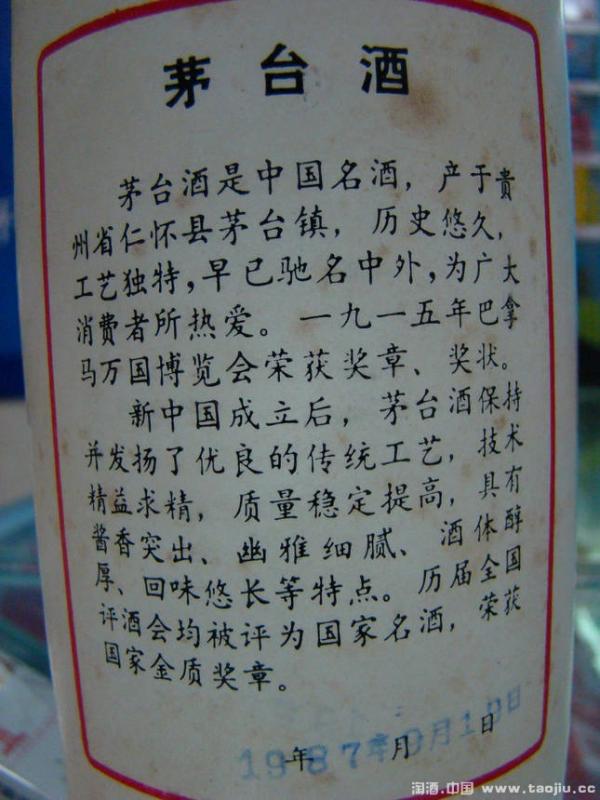 茅台酒
茅台酒是中国名酒，产于贵
州省仁怀县茅台镇，历史悠久，
工艺独特，早已驰名中外，为广大
消费者所热爱。一九一五年巴拿
马万国博览会荣获奖章、奖状。
新中国成立后，茅台酒保持
并发扬了优良的传统工艺，技术
精益求精，质量稳定提高，具有
酱香突出、幽雅细腻、酒体醇
厚、回味悠长等特点。历届全国
评酒会均被评为国家名酒，荣获
国家金质奖章。
年 月 日
1987年9月19日
淘酒.中国 www.taojiu.cc